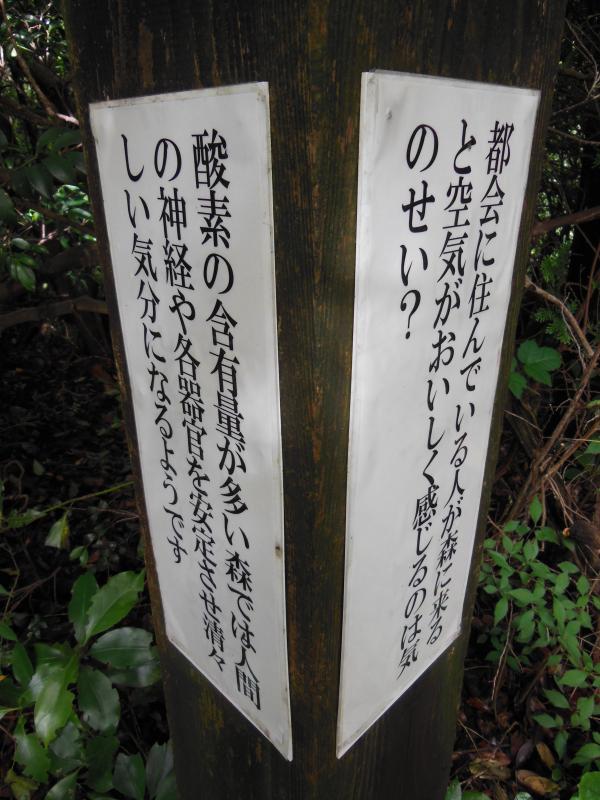 都会に住んでいる人が森に来る
と空気がおいしく感じるのは気
のせい?
酸素の含有量が多い森では人間
の神経や各器官を安定させ清々
しい気分になるようです